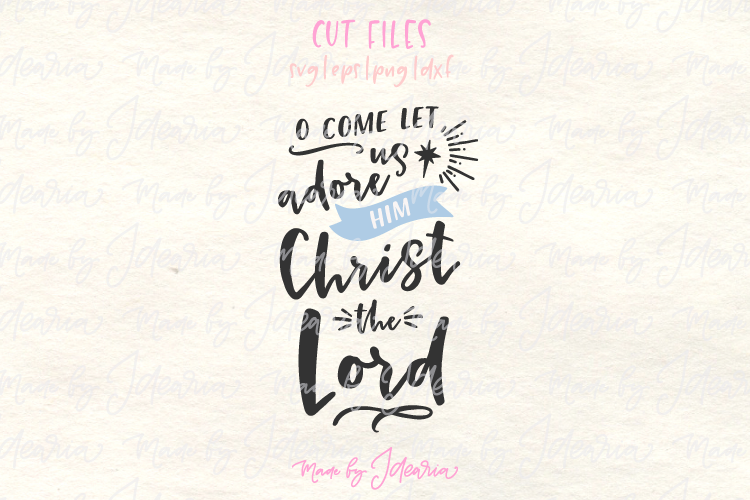 CUT FILES
svg|eps|png|dxf
O COME LET
us
adore
HIM
Christ
the
Lord
Made by Jdearia